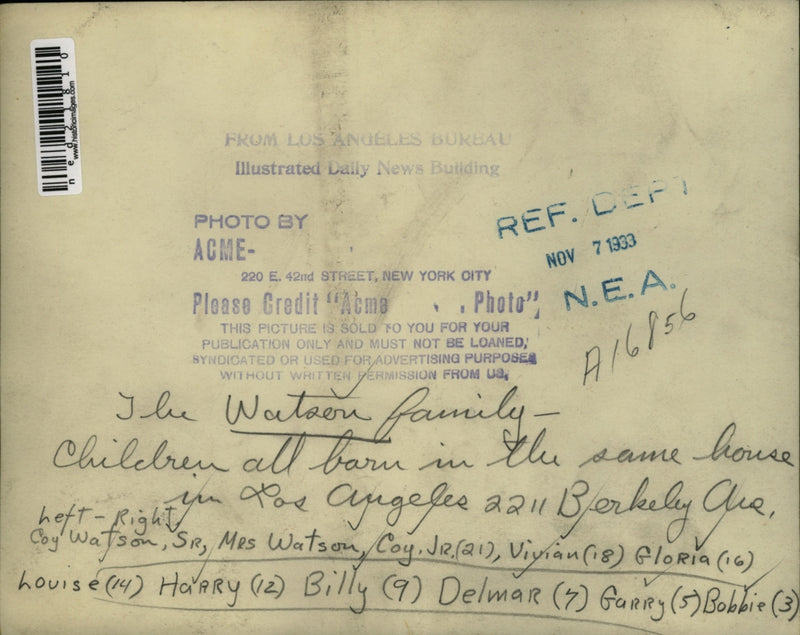 ned21810
www.historicimages.com
FROM LOS ANGELES BUREAU
Illustrated Daily News Building
PHOTO BY
ACME-
220 E. 42nd STREET, NEW YORK CITY
Please Credit "Acme Photo",
THIS PICTURE IS SOLD TO YOU FOR YOUR
PUBLICATION ONLY AND MUST NOT BE LOANED,
SYNDICATED OR USED FOR ADVERTISING PURPOSES
WITHOUT WRITTEN PERMISSION FROM US.
REF. DEPT
NOV 7 1933
N.E.A.
A16856
The Watson family-
Children all born in the same house
in Los Angeles 2211 Berkeley Ave.
Left-Right
Coy Watson, Sr, Mrs Watson, Coy. Jr.(21), Vivian(18) Gloria(16)
Louise(14) Harry(12) Billy (9) Delmar (7) Garry(5) Bobbie(3)